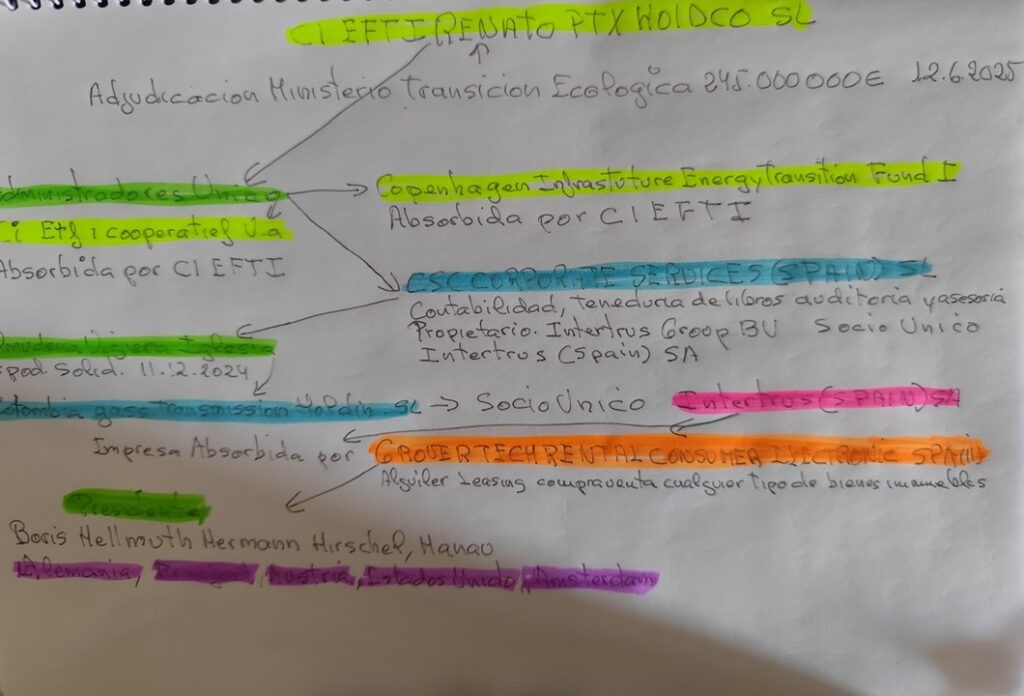 CI EFTI RENATO PTX HOLDCO SL
Adjudicacion Ministerio Transicion Ecologica 245.000000€ 12.6.2025
dministradores Unico
Copenhagen Infrastuture Energy Transition Fund I
Absorbida por CI EFTI
i Etf i cooperatief U.a
Absorbida por CI EFTI
CSC CORPORATE SERDICES (SPAIN) SL
Contabilidad, teneduria de libros auditoria y asesoria
Propietario. Intertrus Groop BU Socio Unico
Intertros (Spain) SA
pod. Solid. 11.12.2024
olombia gass transmission Holdin. SL → Socio Unico Intertros (SPAIN) SA
Impresa Absorbida por GROUER TECH RENTAL CONSUMER ELECTRONIC SPAIN
Alquiler Leasing compraventa cualquier tipo de bienes inmuebles
Presidente
Boris Hellmuth Hermann Hirschel, Hanau
Alemania, Austria, Estados Unido, Amsterdam